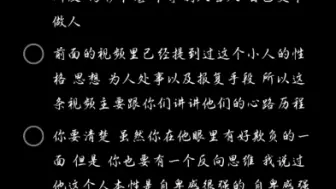 做人
前面的视频里已经提到过这个小人的性
格 思想 为人处事以及报复手段 所以这
条视频主要跟你们讲讲他们的心路历程
你要清楚 虽然你在他眼里有好欺负的一
面 但是 你也要有一个反向思维 我说过
他这个人本性是自卑感很强的 自卑感强